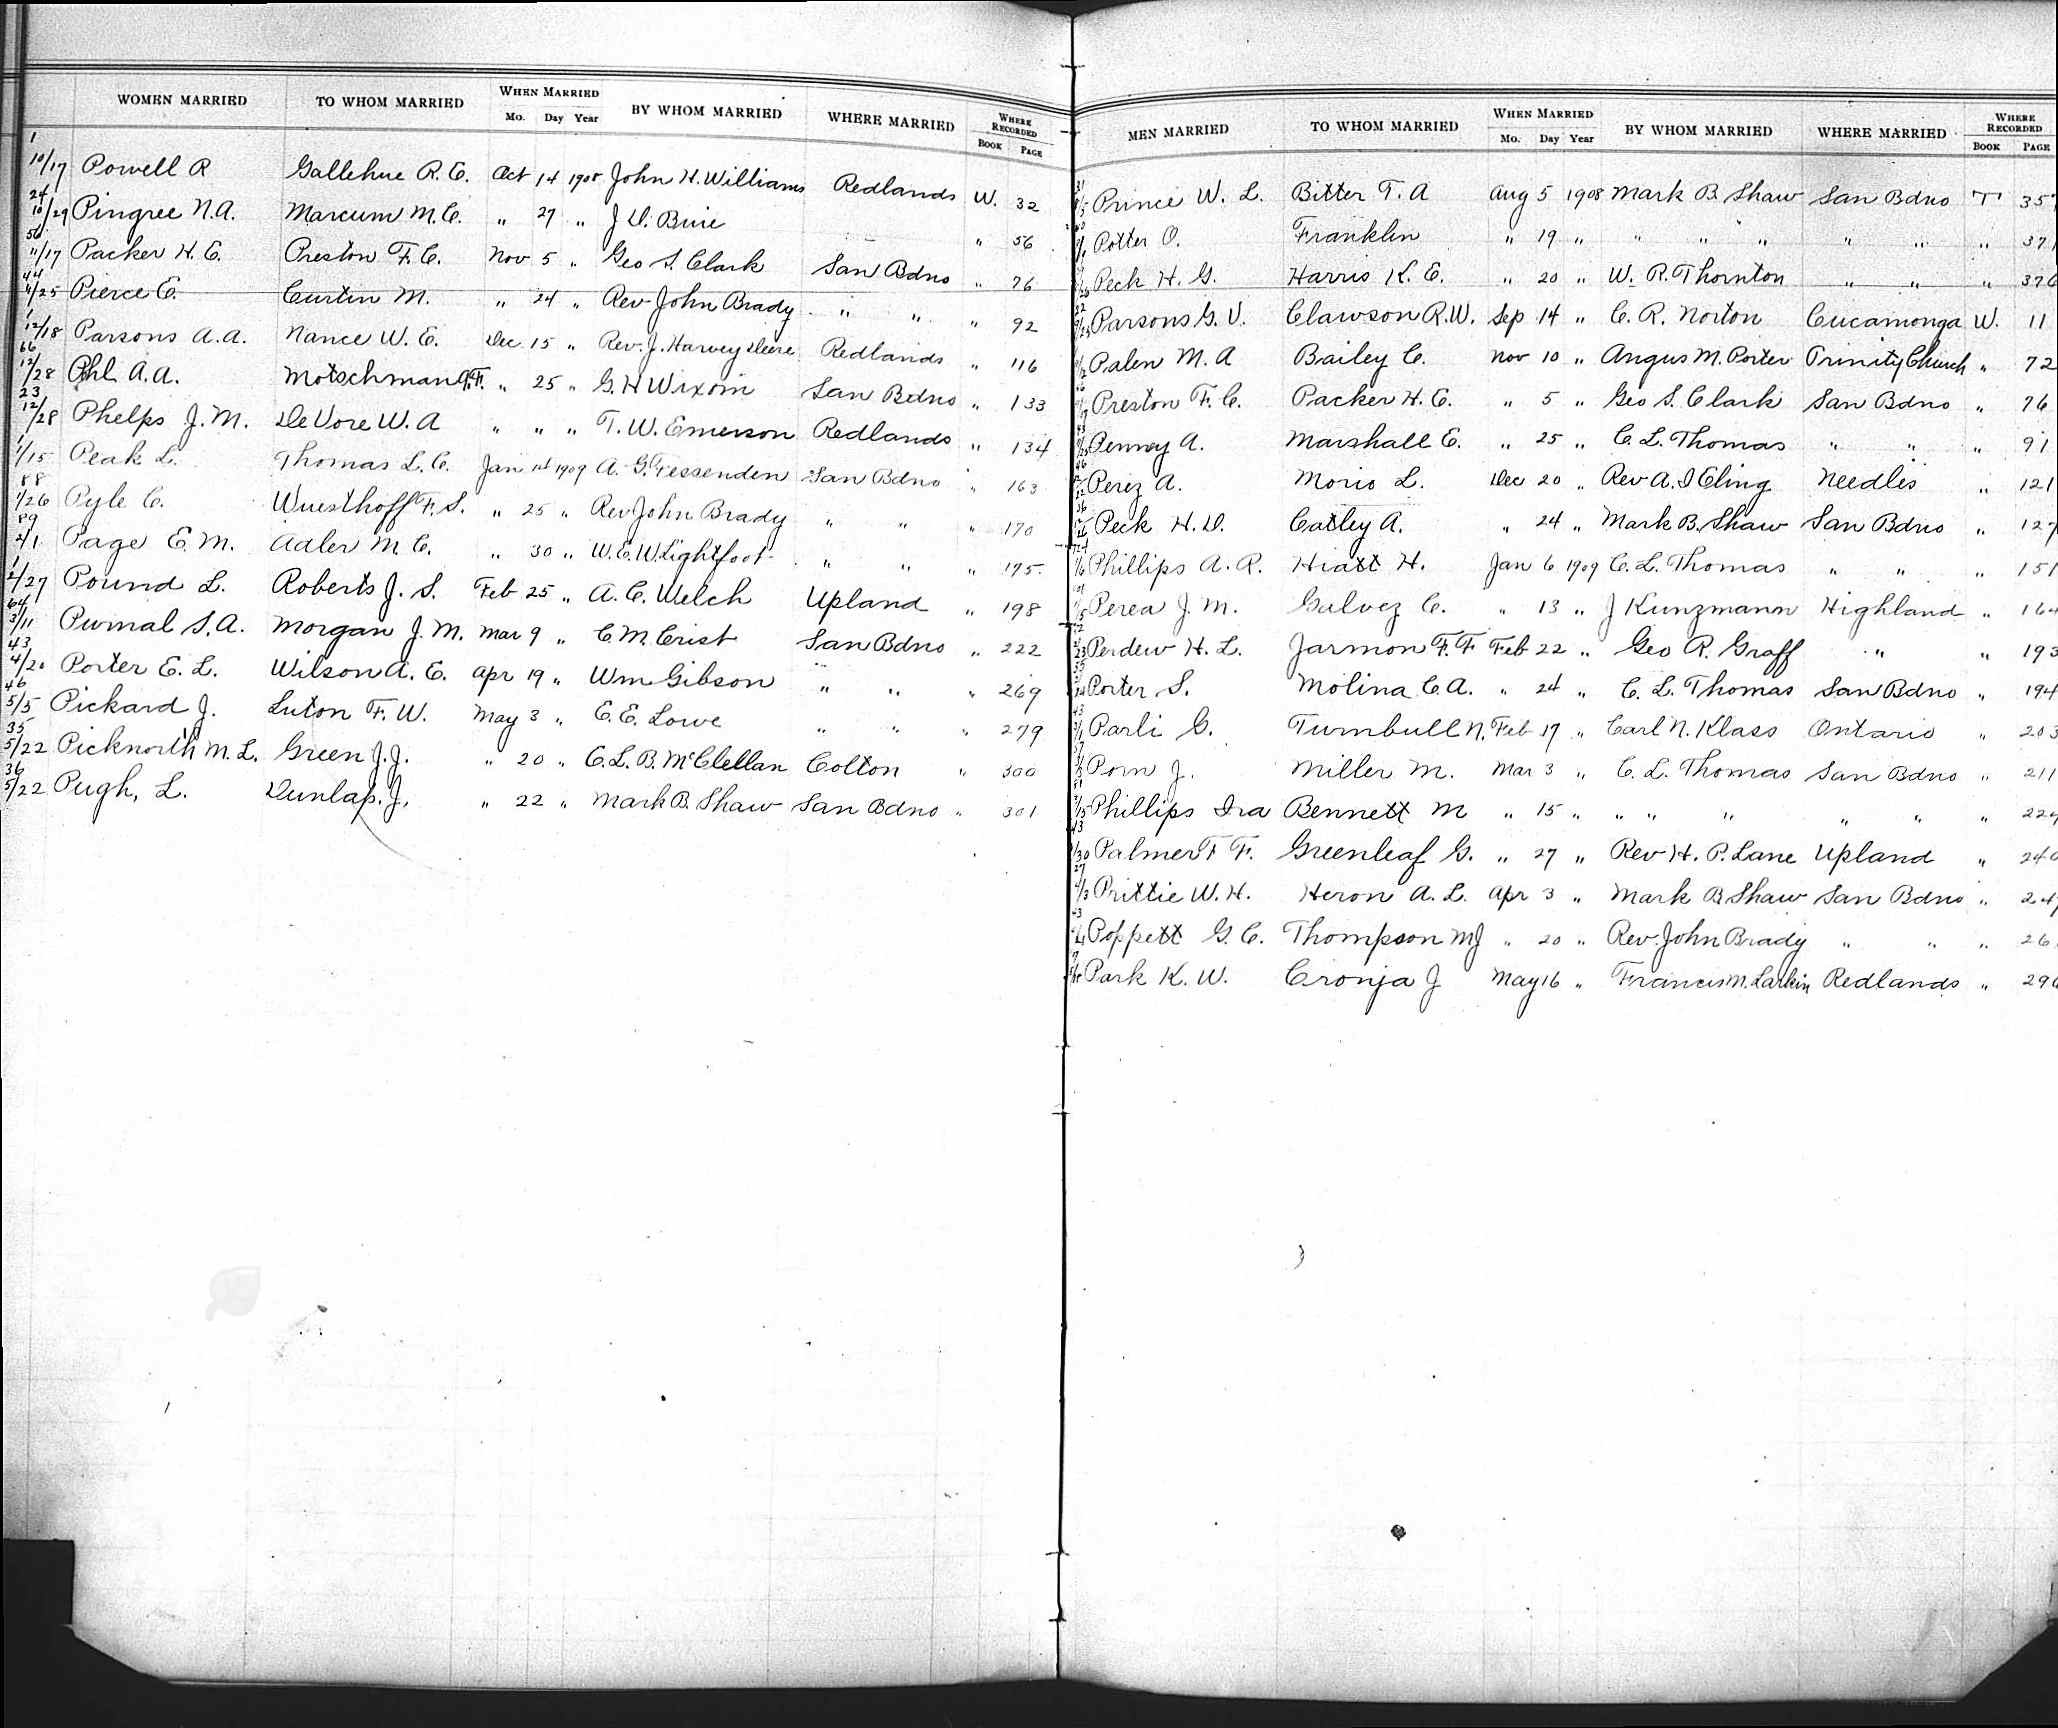 WOMEN MARRIED TO WHOM MARRIED WHEN MARRIED Mo. Day Year BY WHOM MARRIED WHERE MARRIED WHERE RECORDED BOOK PAGE
1
10/17 Powell R Gallehue R. E. Oct 14 1908 John H. Williams Redlands W. 32
24
10/29 Pingree N.A. Marcum M.C. " 27 " J D. " 56
56
11/17 Packer H. E. Preston F. C. Nov 5 " Geo S. Clark San Bdno " 76
44
11/25 Pierce E. Curtin M. " 24 " Rev John Brady " " " 92
1
12/18 Parsons A.A. Nance W. E. Dec 15 " Rev. J. Harvey Deere Redlands " 116
66
12/28 Phl A.A. Motschman F. " 25 " G. H Wixom San Bdno " 133
23
12/28 Phelps J. M. DeVore W. A " " " T. W. Emerson Redlands " 134
1
1/15 Peak L. Thomas L. C. Jan 1st 1909 A. G. Fessenden San Bdno " 163
88
1/26 Pyle C. Wuesthoff F. S. " 25 " Rev John Brady " " " 170
89
2/1 Page E. M. Adler M. C. " 30 " W. E. W. Lightfoot " " " 175
1
2/27 Pound L. Roberts J. S. Feb 25 " A. C. Welch Upland " 198
64
3/11 Purnal S. A. Morgan J. M. Mar 9 " C. M. Crist San Bdno " 222
43
4/20 Porter E. L. Wilson A. E. Apr 19 " Wm Gibson " " " 269
46
5/5 Pickard J. Luton F. W. May 3 " E. E. Lowe " " " 279
35
5/22 Picknorth M. L. Green J. J. " 20 " C. L. B. McClellan Colton " 300
36
5/22 Pugh, L. Dunlap. J. " 22 " Mark B. Shaw San Bdno " 301
MEN MARRIED TO WHOM MARRIED WHEN MARRIED Mo. Day Year BY WHOM MARRIED WHERE MARRIED WHERE RECORDED BOOK PAGE
Prince W. L. Bitter T. A Aug 5 1908 Mark B. Shaw San Bdno T 357
Potter O. Franklin " 19 " " " " " " " 371
Peck H. G. Harris K. E. " 20 " W. R. Thornton " " " 376
Parsons G. V. Clawson R. W. Sep 14 " C. R. Norton Cucamonga W. 11
Palen M. A Bailey C. Nov 10 " Angus M. Porter Trinity Church " 72
Preston F. C. Packer H. E. " 5 " Geo S. Clark San Bdno " 76
Penney A. Marshall E. " 25 " C. L. Thomas " " " 91
Perez A. Morio L. Dec 20 " Rev A. J Eling Needles " 121
Peck H. D. Catley A. " 24 " Mark B. Shaw San Bdno " 127
Phillips A. R. Hiatt H. Jan 6 1909 C. L. Thomas " " " 151
Perea J. M. Galvez C. " 13 " J Kunzmann Highland " 164
Perdew H. L. Jarmon F. F Feb 22 " Geo R. Graff " " 193
Porter S. Molina C. A. " 24 " C. L. Thomas San Bdno " 194
Parli G. Turnbull N. Feb 17 " Carl N. Klass Ontario " 203
Porn J. Miller M. Mar 3 " C. L. Thomas San Bdno " 211
Phillips Ira Bennett M " 15 " " " " " " " 229
Palmer F F. Greenleaf G. " 27 " Rev H. P. Lane Upland " 240
Prittie W. H. Heron A. L. Apr 3 " Mark B Shaw San Bdno " 247
Poppett G. C. Thompson M J " 20 " Rev. John Brady " " " 26
Park K. W. Cronja J May 16 " Francis M. Larkin Redlands " 296